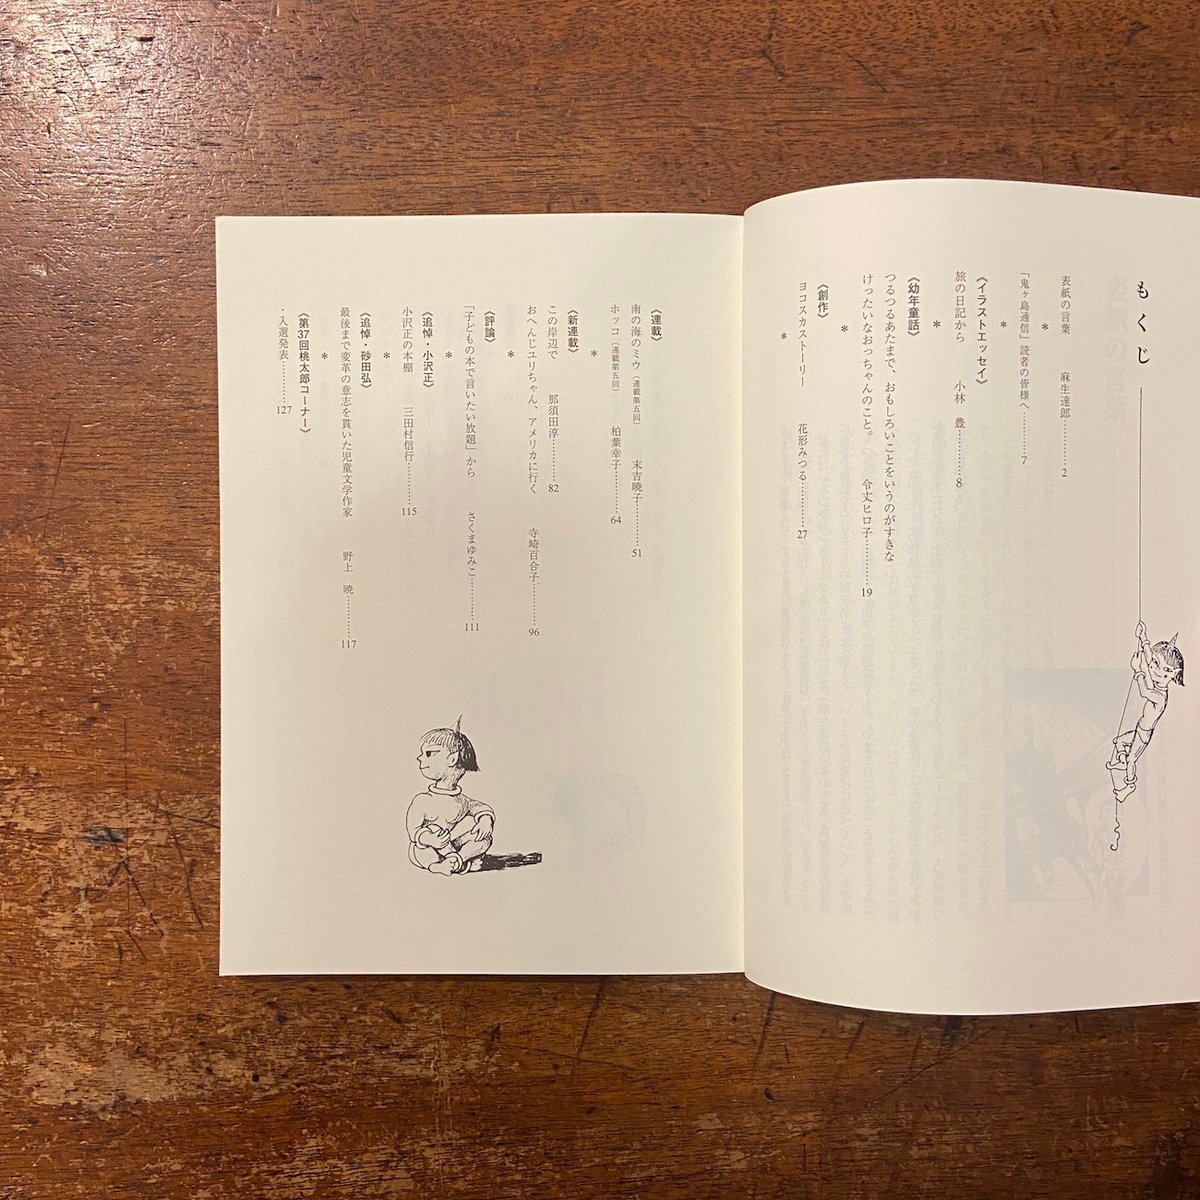 もくじ
表紙の言葉 麻生達郎…………2
＊
「鬼ヶ島通信」読者の皆様へ…………7
＊
〈イラストエッセイ〉
旅の日記から 小林 豊…………8
＊
〈幼年童話〉
つるつるあたまで、おもしろいことをいうのがすきな
けったいなおっちゃんのこと。 令丈ヒロ子…………19
＊
〈創作〉
ヨコスカストーリー 花形みつる…………27
＊
〈連載〉
南の海のミウ（連載第五回） 末吉暁子…………51
ホッコ（連載第五回） 柏葉幸子…………64
＊
〈新連載〉
この岸辺で 那須田淳…………82
おへんじユリちゃん、アメリカに行く 寺崎百合子…………96
＊
〈評論〉
「子どもの本で言いたい放題」から さくまゆみこ…………111
＊
〈追悼・小沢正〉
小沢正の本棚 三田村信行…………115
＊
〈追悼・砂田弘〉
最後まで変革の意志を貫いた児童文学作家 野上 暁…………117
＊
〈第37回桃太郎コーナー〉
・入選発表…………127